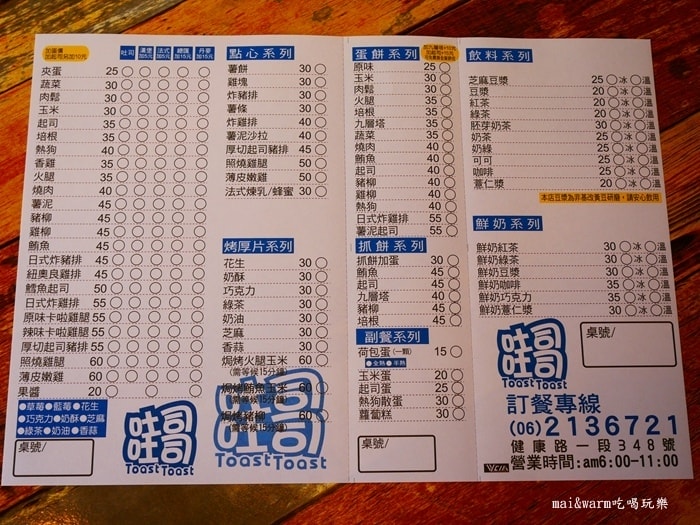 加蛋磚
加起司另加10元
吐司 漢堡加5元 法式加5元 總匯加15元 丹麥加15元
夾蛋 25
蔬菜 30
肉鬆 30
玉米 30
起司 35
培根 35
熱狗 40
香雞 35
火腿 35
燒肉 40
薯泥 40
豬柳 40
雞柳 40
鮪魚 40
日式炸豬排 45
紐奧良雞排 45
鱈魚起司 50
日式炸雞排 55
原味卡啦雞腿 55
辣味卡啦雞腿 55
厚切起司豬排 55
照燒雞腿 60
薄皮嫩雞 60
果醬 20
●草莓●藍莓●花生
●巧克力●奶酥●芝麻
●綠茶●奶油●香蒜
桌號/
哇司
Toast Toast
點心系列
薯餅 30
雞塊 30
炸豬排 30
薯條 30
炸雞排 40
薯泥沙拉 40
厚切起司豬排 40
照燒雞腿 50
薄皮嫩雞 50
法式煉乳/蜂蜜 30
烤厚片系列
花生 30
奶酥 30
巧克力 30
綠茶 30
奶油 30
芝麻 30
香蒜 30
焗烤火腿玉米 60
(需等候15分鐘)
焗烤鮪魚玉米 60
(需等候15分鐘)
焗烤豬柳 60
(需等候15分鐘)
哇司
Toast Toast
蛋餅系列
原味 25
玉米 30
肉鬆 30
火腿 35
培根 35
九層塔 35
蔬菜 35
燒肉 40
鮪魚 40
起司 40
豬柳 40
雞柳 40
熱狗 40
日式炸雞排 55
薯泥起司 55
抓餅系列
抓餅加蛋 30
鮪魚 45
起司 45
九層塔 40
豬柳 45
培根 45
副餐系列
荷包蛋(一顆) 15
●全熟●半熟
玉米蛋 20
起司蛋 25
熱狗散蛋 30
蘿蔔糕 30
桌號/
飲料系列
芝麻豆漿 25 冰 溫
豆漿 20 冰 溫
紅茶 20 冰 溫
綠茶 20 冰 溫
胚芽奶茶 30 冰 溫
奶茶 25 冰 溫
奶綠 25 冰 溫
可可 25 冰 溫
咖啡 25 冰 溫
薏仁漿 20 冰 溫
本店豆漿為非基改黃豆研磨,請安心飲用
鮮奶系列
鮮奶紅茶 30 冰 溫
鮮奶綠茶 30 冰 溫
鮮奶豆漿 30 冰 溫
鮮奶咖啡 35 冰 溫
鮮奶巧克力 35 冰 溫
鮮奶薏仁漿 30 冰 溫
哇司
Toast Toast
桌號/
訂餐專線
(06)2136721
健康路一段348號
營業時間:am6:00-11:00
mai&warm吃喝玩樂